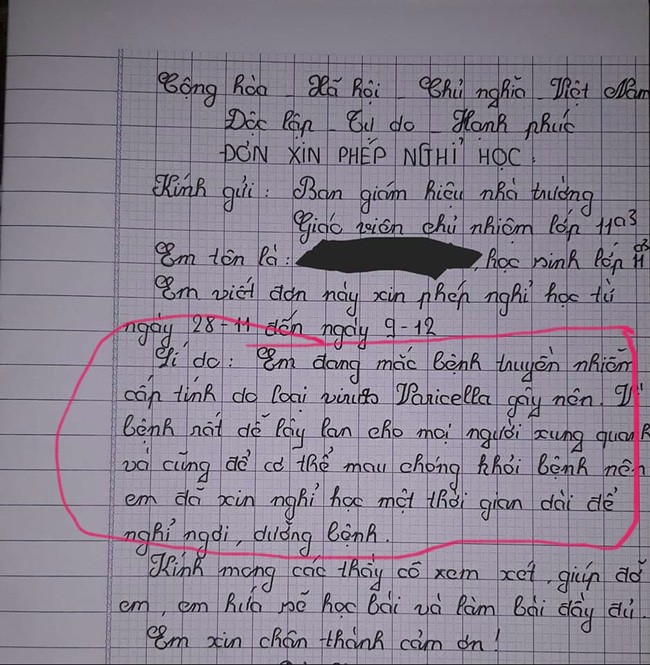 Cộng hòa - Xã hội - Chủ nghĩa - Việt Nam
Độc lập - Tự do - Hạnh phúc
ĐƠN XIN PHÉP NGHỈ HỌC.
Kính gửi: Ban giám hiệu nhà trường
Giáo viên chủ nhiệm lớp 11a3
Em tên là: , học sinh lớp 11a3
Em viết đơn này xin phép nghỉ học từ
ngày 28-11 đến ngày 9-12
Lí do: Em đang mắc bệnh truyền nhiễm
cấp tính do loại virut Varicella gây nên. Vì
bệnh rất dễ lây lan cho mọi người xung quanh
và cũng để có thể mau chóng khỏi bệnh nên
em đã xin nghỉ học một thời gian dài để
nghỉ ngơi, dưỡng bệnh.
Kính mong các thầy cô xem xét, giúp đỡ
em, em hứa sẽ học bài và làm bài đầy đủ.
Em xin chân thành cảm ơn!